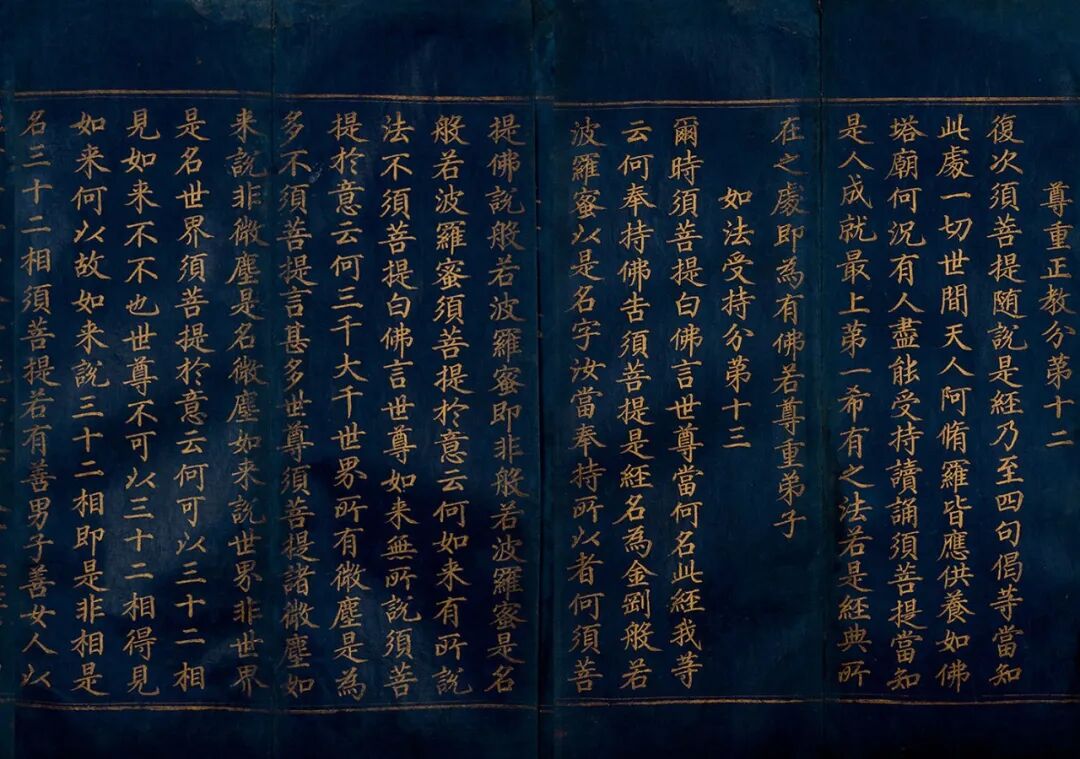 尊重正教分弟十二
復次須菩提随說是經乃至四句偈等當知
此處一切世間天人阿脩羅皆應供養如佛
塔廟何況有人盡能受持讀誦須菩提當知
是人成就最上弟一希有之法若是經典所
在之處即為有佛若尊重弟子
如法受持分弟十三
爾時須菩提白佛言世尊當何名此經我等
云何奉持佛告須菩提是經名為金剛般若
波羅蜜以是名字汝當奉持所以者何須菩
提佛說般若波羅蜜即非般若波羅蜜是名
般若波羅蜜須菩提於意云何如来有所說
法不須菩提白佛言世尊如来無所說須菩
提於意云何三千大千世界所有微塵是為
多不須菩提言甚多世尊須菩提諸微塵如
来說非微塵是名微塵如来說世界非世界
是名世界須菩提於意云何可以三十二相
見如来不不也世尊不可以三十二相得見
如来何以故如来說三十二相即是非相是
名三十二相須菩提若有善男子善女人以